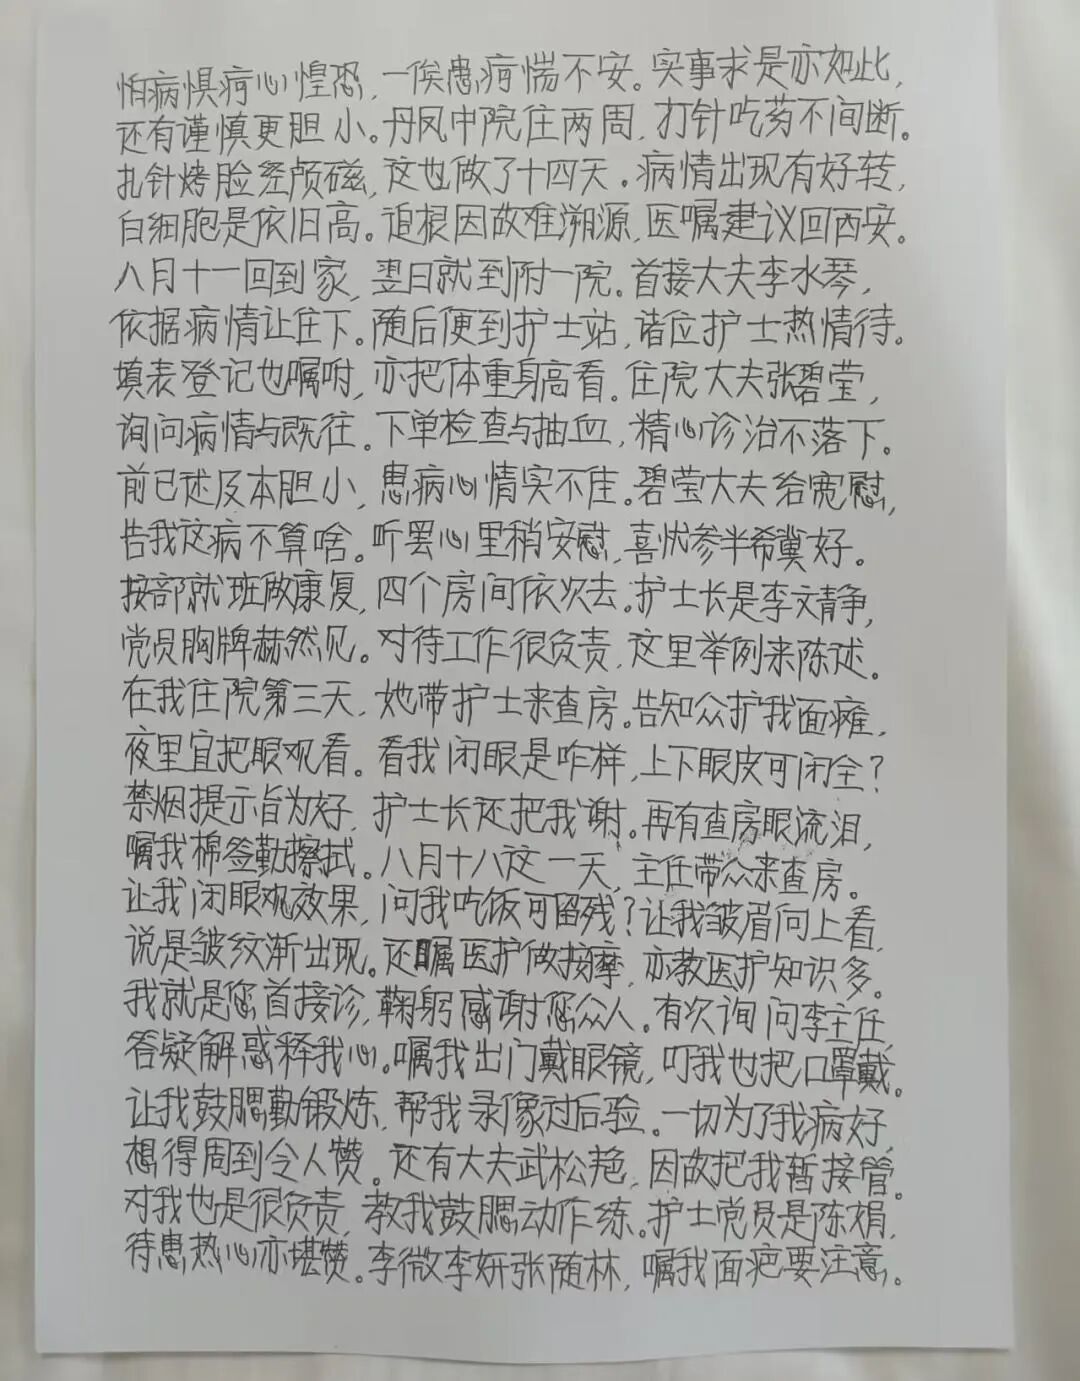 怕病惧病心惶恐，一俟患病惴不安。实事求是亦如此，
还有谨慎更胆小。丹凤中院住两周，打针吃药不间断。
扎针烤脸经颅磁，这也做了十四天。病情出现有好转，
白细胞是依旧高。追根因故难溯源，医嘱建议回西安。
八月十一回到家，翌日就到附一院。首接大夫李水琴，
依据病情让住下。随后便到护士站，诸位护士热情待。
填表登记也嘱咐，亦把体重身高看。住院大夫张碧莹，
询问病情与既往。下单检查与抽血，精心诊治不落下。
前已述及本胆小，患病心情实不佳。碧莹大夫给宽慰，
告我这病不算啥。听罢心里稍安慰，喜忧参半希冀好。
按部就班做康复，四个房间依次去。护士长是李文静，
党员胸牌赫然见。对待工作很负责，这里举例来陈述。
在我住院第三天，她带护士来查房。告知众护我面瘫，
夜里宜把眼观看。看我闭眼是咋样，上下眼皮可闭全？
禁烟提示皆为好，护士长还把我谢。再有查房眼流泪，
嘱我棉签勤擦拭。八月十八这一天，主任带众来查房。
让我闭眼观效果，问我吃饭可留残？让我皱眉向上看，
说是皱纹渐出现。还嘱医护做按摩，亦教医护知识多。
我就是您首接诊，鞠躬感谢您众人。有次询问李主任，
答疑解惑释我心。嘱我出门戴眼镜，叮我也把口罩戴。
让我鼓腮勤锻炼，帮我录像过后验。一切为了我病好，
想得周到令人赞。还有大夫武松艳，因故把我暂接管。
对我也是很负责，教我鼓腮动作练。护士党员是陈娟，
待患热心亦堪赞。李微李妍张随林，嘱我面疤要注意。